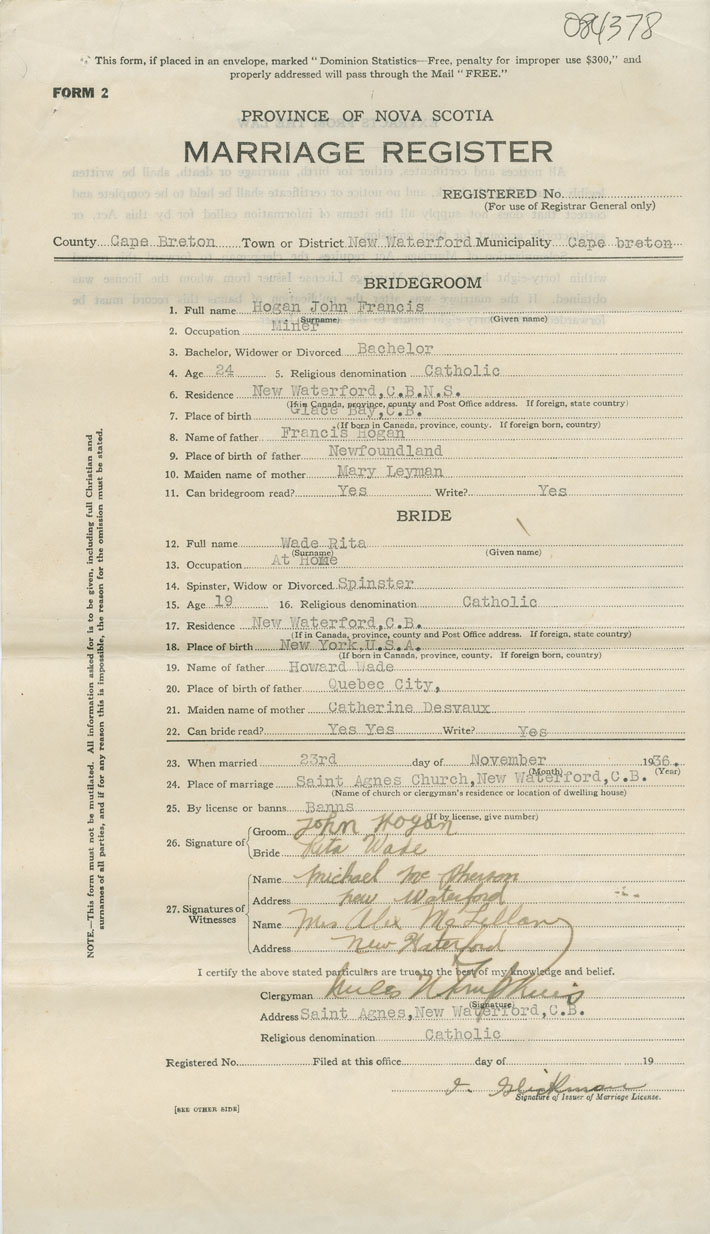 084378
This form, if placed in an envelope, marked "Dominion Statistics—Free, penalty for improper use $300," and
properly addressed will pass through the Mail "FREE."
FORM 2
PROVINCE OF NOVA SCOTIA
MARRIAGE REGISTER
REGISTERED No.
(For use of Registrar General only)
County Cape Breton Town or District New Waterford Municipality Cape breton
BRIDEGROOM
1. Full name Hogan John Francis
(Surname) (Given name)
2. Occupation Miner
3. Bachelor, Widower or Divorced Bachelor
4. Age 24 5. Religious denomination Catholic
6. Residence New Waterford,C.B.N.S.
(If in Canada, province, county and Post Office address. If foreign, state country)
7. Place of birth Glace Bay,C.B.
(If born in Canada, province, county. If foreign born, country)
8. Name of father Francis Hogan
9. Place of birth of father Newfoundland
10. Maiden name of mother Mary Leyman
11. Can bridegroom read? Yes Write? Yes
BRIDE
12. Full name Wade Rita
(Surname) (Given name)
13. Occupation At Home
14. Spinster, Widow or Divorced Spinster
15. Age 19 16. Religious denomination Catholic
17. Residence New Waterford,C.B.
(If in Canada, province, county and Post Office address. If foreign, state country)
18. Place of birth New York,U.S.A.
(If born in Canada, province, county. If foreign born, country)
19. Name of father Howard Wade
20. Place of birth of father Quebec City,
21. Maiden name of mother Catherine Desvaux
22. Can bride read? Yes Yes Write? Yes
23. When married 23rd day of November 1936.
(Month) (Year)
24. Place of marriage Saint Agnes Church,New Waterford,C.B.
(Name of church or clergyman's residence or location of dwelling house)
25. By license or banns Banns
(If by license, give number)
26. Signature of
Groom John Hogan
Bride Rita Wade
27. Signatures of Witnesses
Name Michael Mc Pherson
Address New Waterford
Name Mrs Alex McLellan
Address New Waterford
I certify the above stated particulars are true to the best of my knowledge and belief.
Clergyman Miles
(Signature)
Address Saint Agnes,New Waterford,C.B.
Religious denomination Catholic
Registered No. Filed at this office day of 19
Signature of Issuer of Marriage License.
[SEE OTHER SIDE]
NOTE.—This form must not be mutilated. All information asked for is to be given, including full Christian and
surnames of all parties, and if for any reason this is impossible, the reason for the omission must be stated.